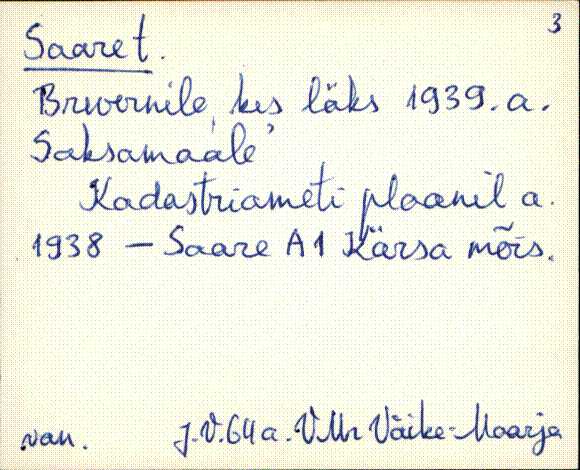 3
Saare t.
Brevernile, kes läks 1939. a.
Saksamaale"
Kadastriameti plaanil a.
1938 — Saare A 1 Kärsa mõis.
van. J.V. 64 a. VMr Väike-Maarja